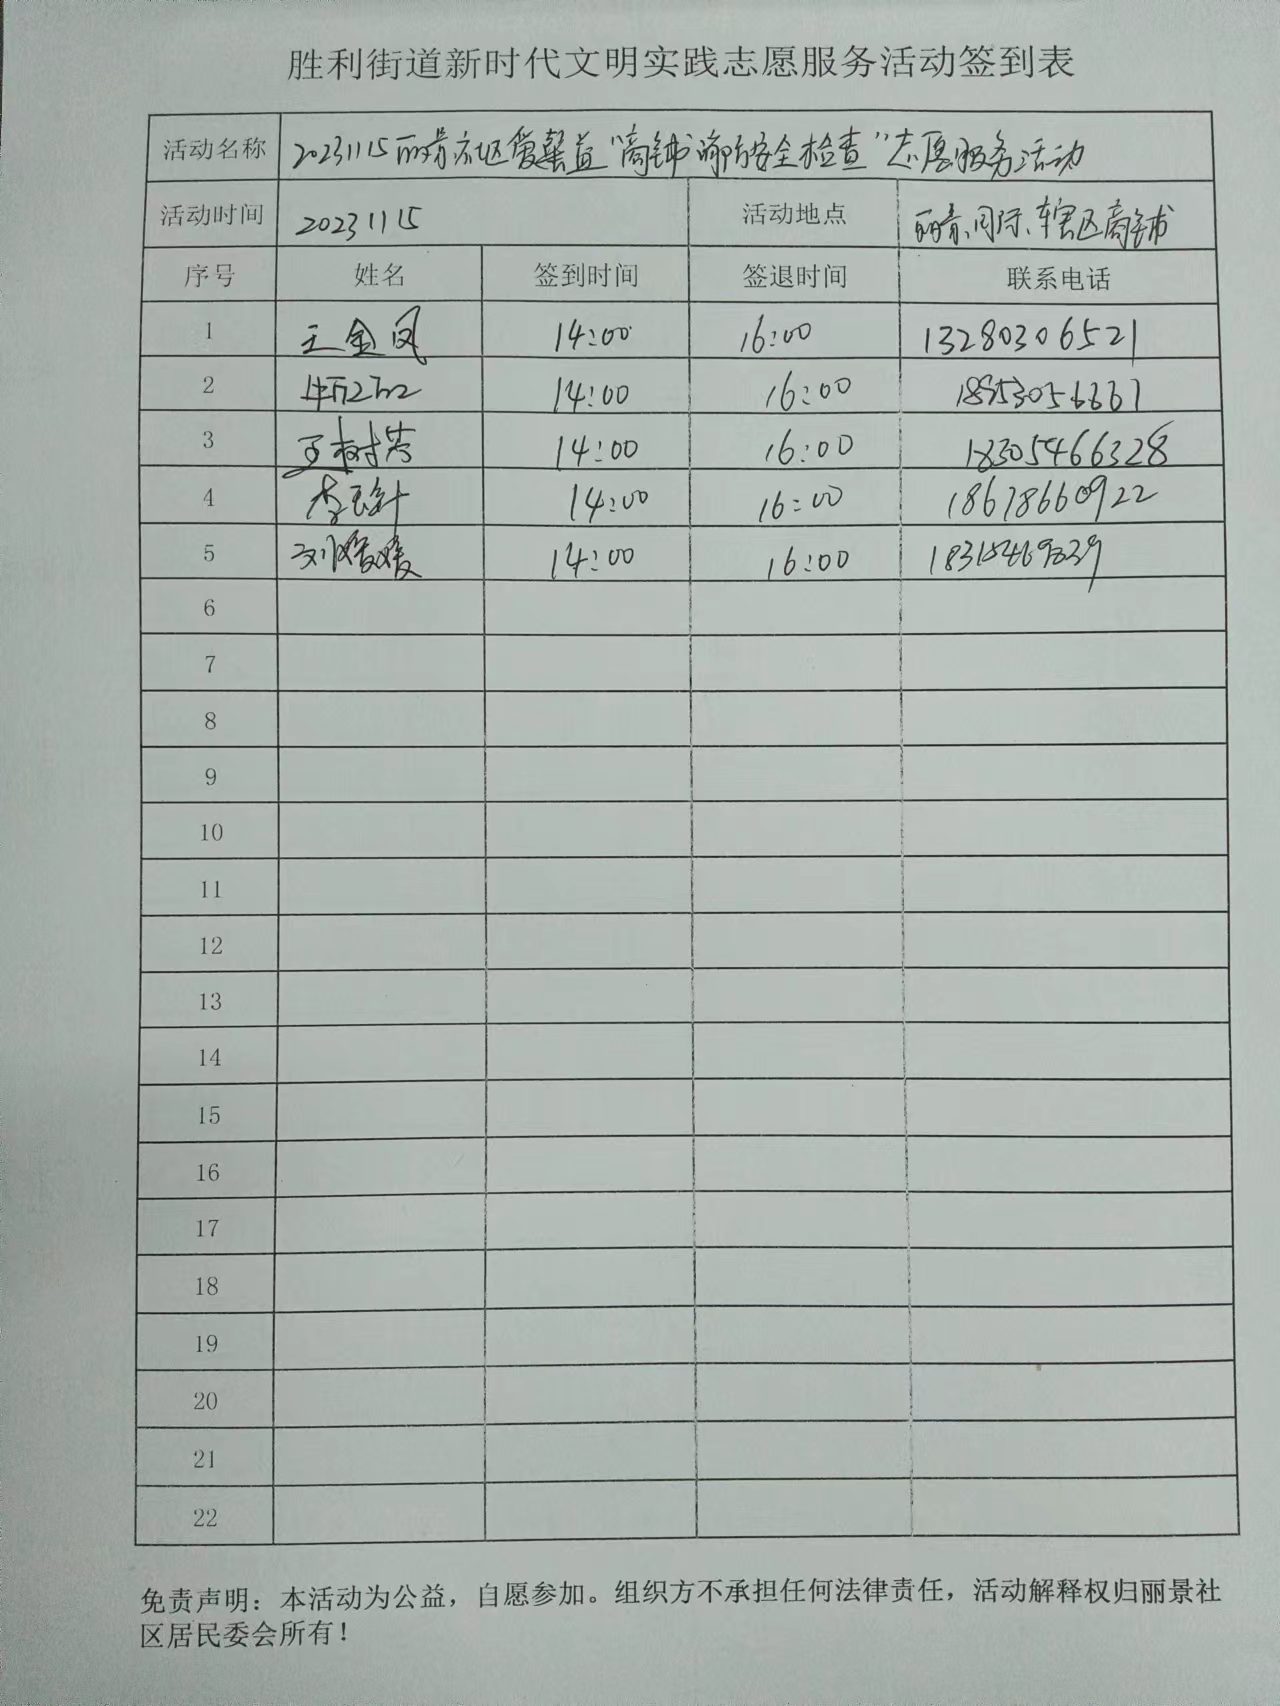 胜利街道新时代文明实践志愿服务活动签到表
活动名称 20231115丽景社区爱馨益“商铺消防安全检查”志愿服务活动
活动时间 20231115 活动地点 丽景、同际、辖区商铺
序号 姓名 签到时间 签退时间 联系电话
1 王金凤 14:00 16:00 13280306521
2 14:00 16:00
3 王树芳 14:00 16:00 18305466328
4 李玉针 14:00 16:00 18678660922
5 刘媛媛 14:00 16:00
6
7
8
9
10
11
12
13
14
15
16
17
18
19
20
21
22
免责声明：本活动为公益，自愿参加。组织方不承担任何法律责任，活动解释权归丽景社
区居民委会所有！